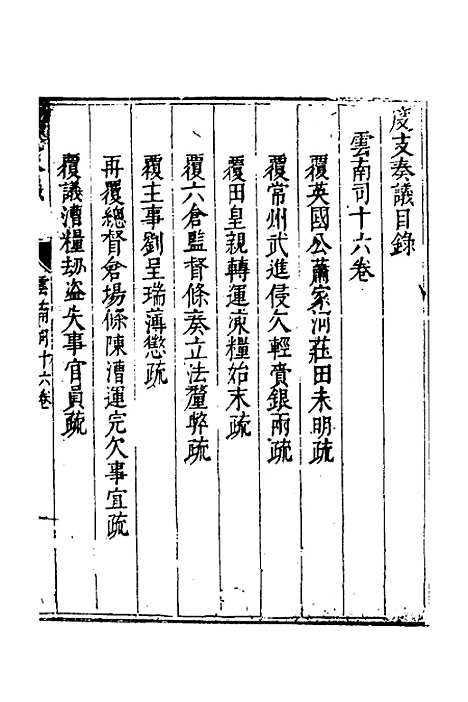 度支奏議目錄
雲南司十六卷
覆英國公蕭家河莊田未明疏
覆常州武進侵欠輕賫銀兩疏
覆田皇親轉運凍糧始末疏
覆六倉監督條奏立法釐弊疏
覆主事劉呈瑞薄懲疏
再覆總督倉場條陳漕運完欠事宜疏
覆議漕糧劫盜失事官員疏
雲南司十六卷